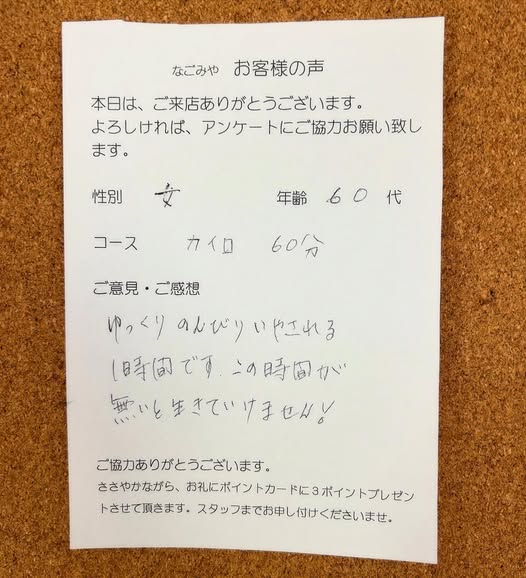 なごみや お客様の声
本日は、ご来店ありがとうございます。
よろしければ、アンケートにご協力お願い致し
ます。
性別 女 年齢 60 代
コース カイロ 60分
ご意見・ご感想
ゆっくり のんびり いやされる
1時間です. この時間が
無いと生きていけません!
ご協力ありがとうございます。
ささやかながら、お礼にポイントカードに3ポイントプレゼン
トさせて頂きます。スタッフまでお申し付けくださいませ。